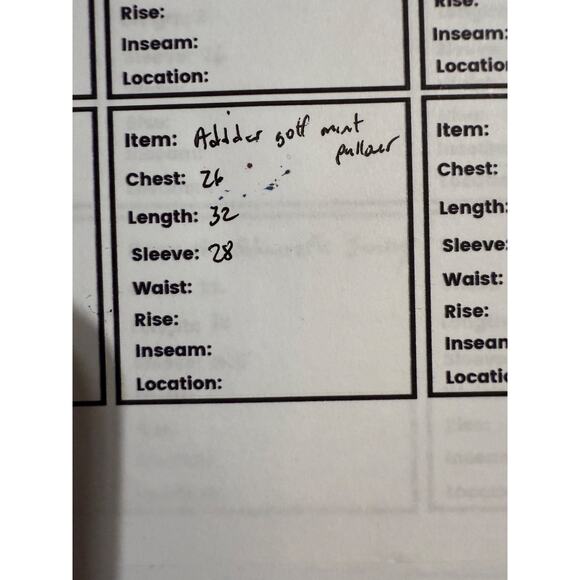 Rise:
Inseam:
Location:
Rise:
Inseam:
Location
Item: Adidas golf mint
pullover
Chest: 26
Length: 32
Sleeve: 28
Waist:
Rise:
Inseam:
Location:
Item:
Chest:
Length:
Sleeve:
Waist:
Rise:
Inseam
Locatio